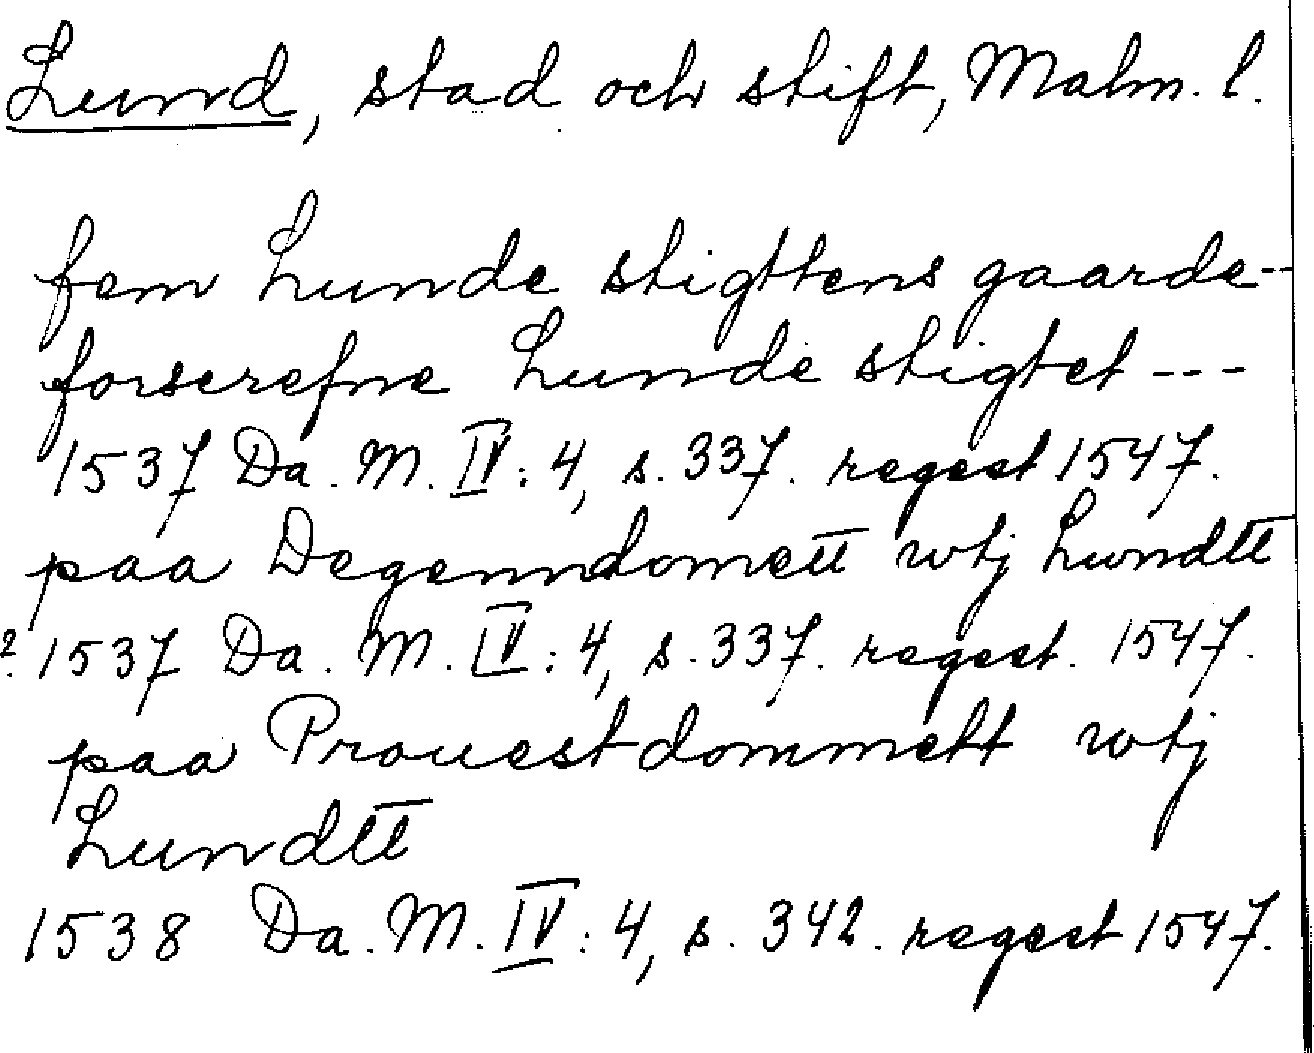 Lund, stad och stift, Malm. l.
fem Lunde stigttens gaarde--
forscrefne Lunde stigtet ---
1537 Da. M. IV: 4, s. 337. regest 1547.
paa Degenndomett wtj Lundtt
? 1537 Da. M. IV: 4, s. 337. regest. 1547.
paa Prouestdommett wtj
Lundtt
1538 Da. M. IV: 4, s. 342. regest 1547.